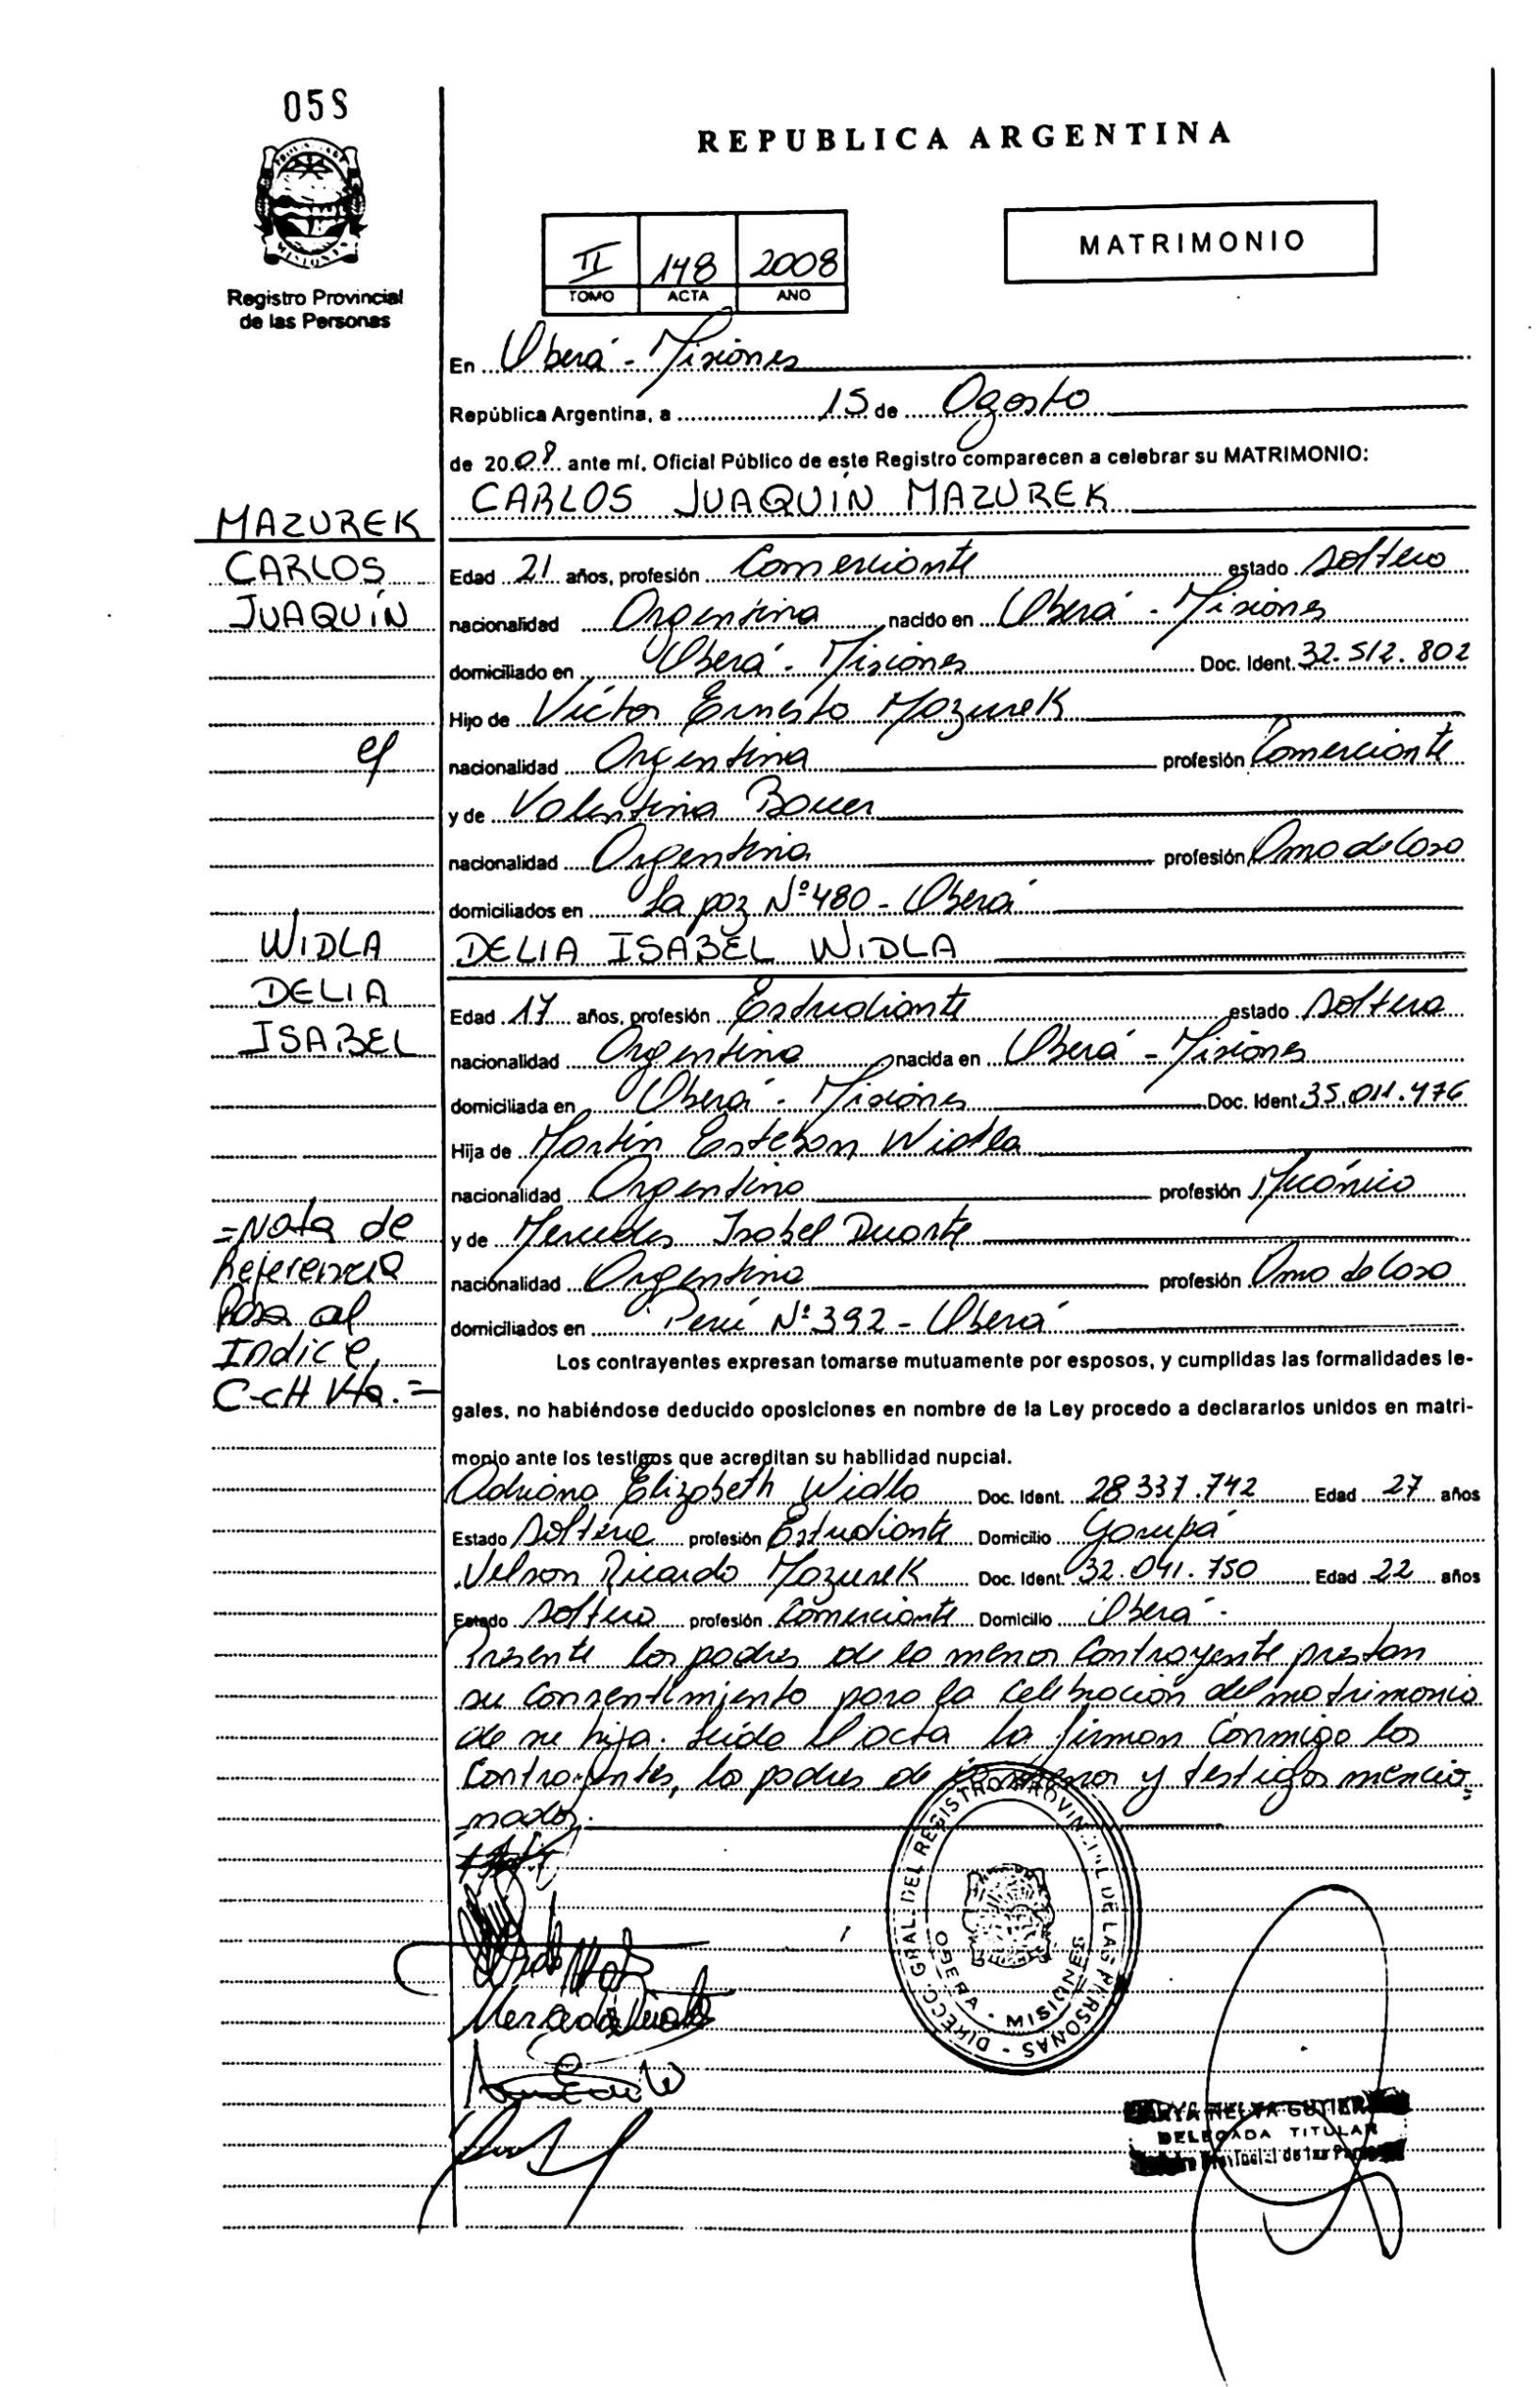 058
REPUBLICA ARGENTINA
MATRIMONIO
II 148 2008
TOMO ACTA AÑO
MISIONES
Registro Provincial
de las Personas
En Oberá - Misiones
República Argentina, a 15 de Agosto
de 2008 ante mí, Oficial Público de este Registro comparecen a celebrar su MATRIMONIO:
CARLOS JUAQUÍN MAZUREK
MAZUREK
CARLOS
JUAQUÍN
Edad 21 años, profesión Comerciante estado soltero
nacionalidad Argentina nacido en Oberá - Misiones
domiciliado en Oberá - Misiones Doc. Ident. 32.512.802
Hijo de Víctor Ernesto Mazurek
nacionalidad Argentina profesión Comerciante
y de Valentina Bauer
nacionalidad Argentina profesión Ama de Casa
domiciliados en La paz Nº 480 - Oberá
WIDLA
DELIA
ISABEL
DELIA ISABEL WIDLA
Edad 17 años, profesión Estudiante estado soltera
nacionalidad Argentina nacida en Oberá - Misiones
domiciliada en Oberá - Misiones Doc. Ident. 35.011.476
Hija de Martín Esteban Widla
nacionalidad Argentina profesión Mecánico
y de Mercedes Isabel Duarte
nacionalidad Argentina profesión Ama de Casa
domiciliados en Perú Nº 392 - Oberá
=Nota de
Referencia
Pasa al
Indice
C-cH Vta.=
Los contrayentes expresan tomarse mutuamente por esposos, y cumplidas las formalidades le-
gales, no habiéndose deducido oposiciones en nombre de la Ley procedo a declararlos unidos en matri-
monio ante los testigos que acreditan su habilidad nupcial.
Adriana Elizabeth Widla Doc. Ident. 28.337.742 Edad 27 años
Estado Soltera profesión Estudiante Domicilio Garupá
Nelson Ricardo Mazurek Doc. Ident. 32.041.750 Edad 22 años
Estado Soltero profesión Comerciante Domicilio Oberá.
Presente los padres de la menor Contrayente prestan
su Consentimiento para la Celebración del matrimonio
de su hija. Leída el acta la firman Conmigo los
Contrayentes, los padres de la menor y testigos mencio-
nados.
DIRECC. GRAL. DEL REGISTRO PROVINCIAL DE LAS PERSONAS
OBERA - MISIONES
DELEGADA TITULAR